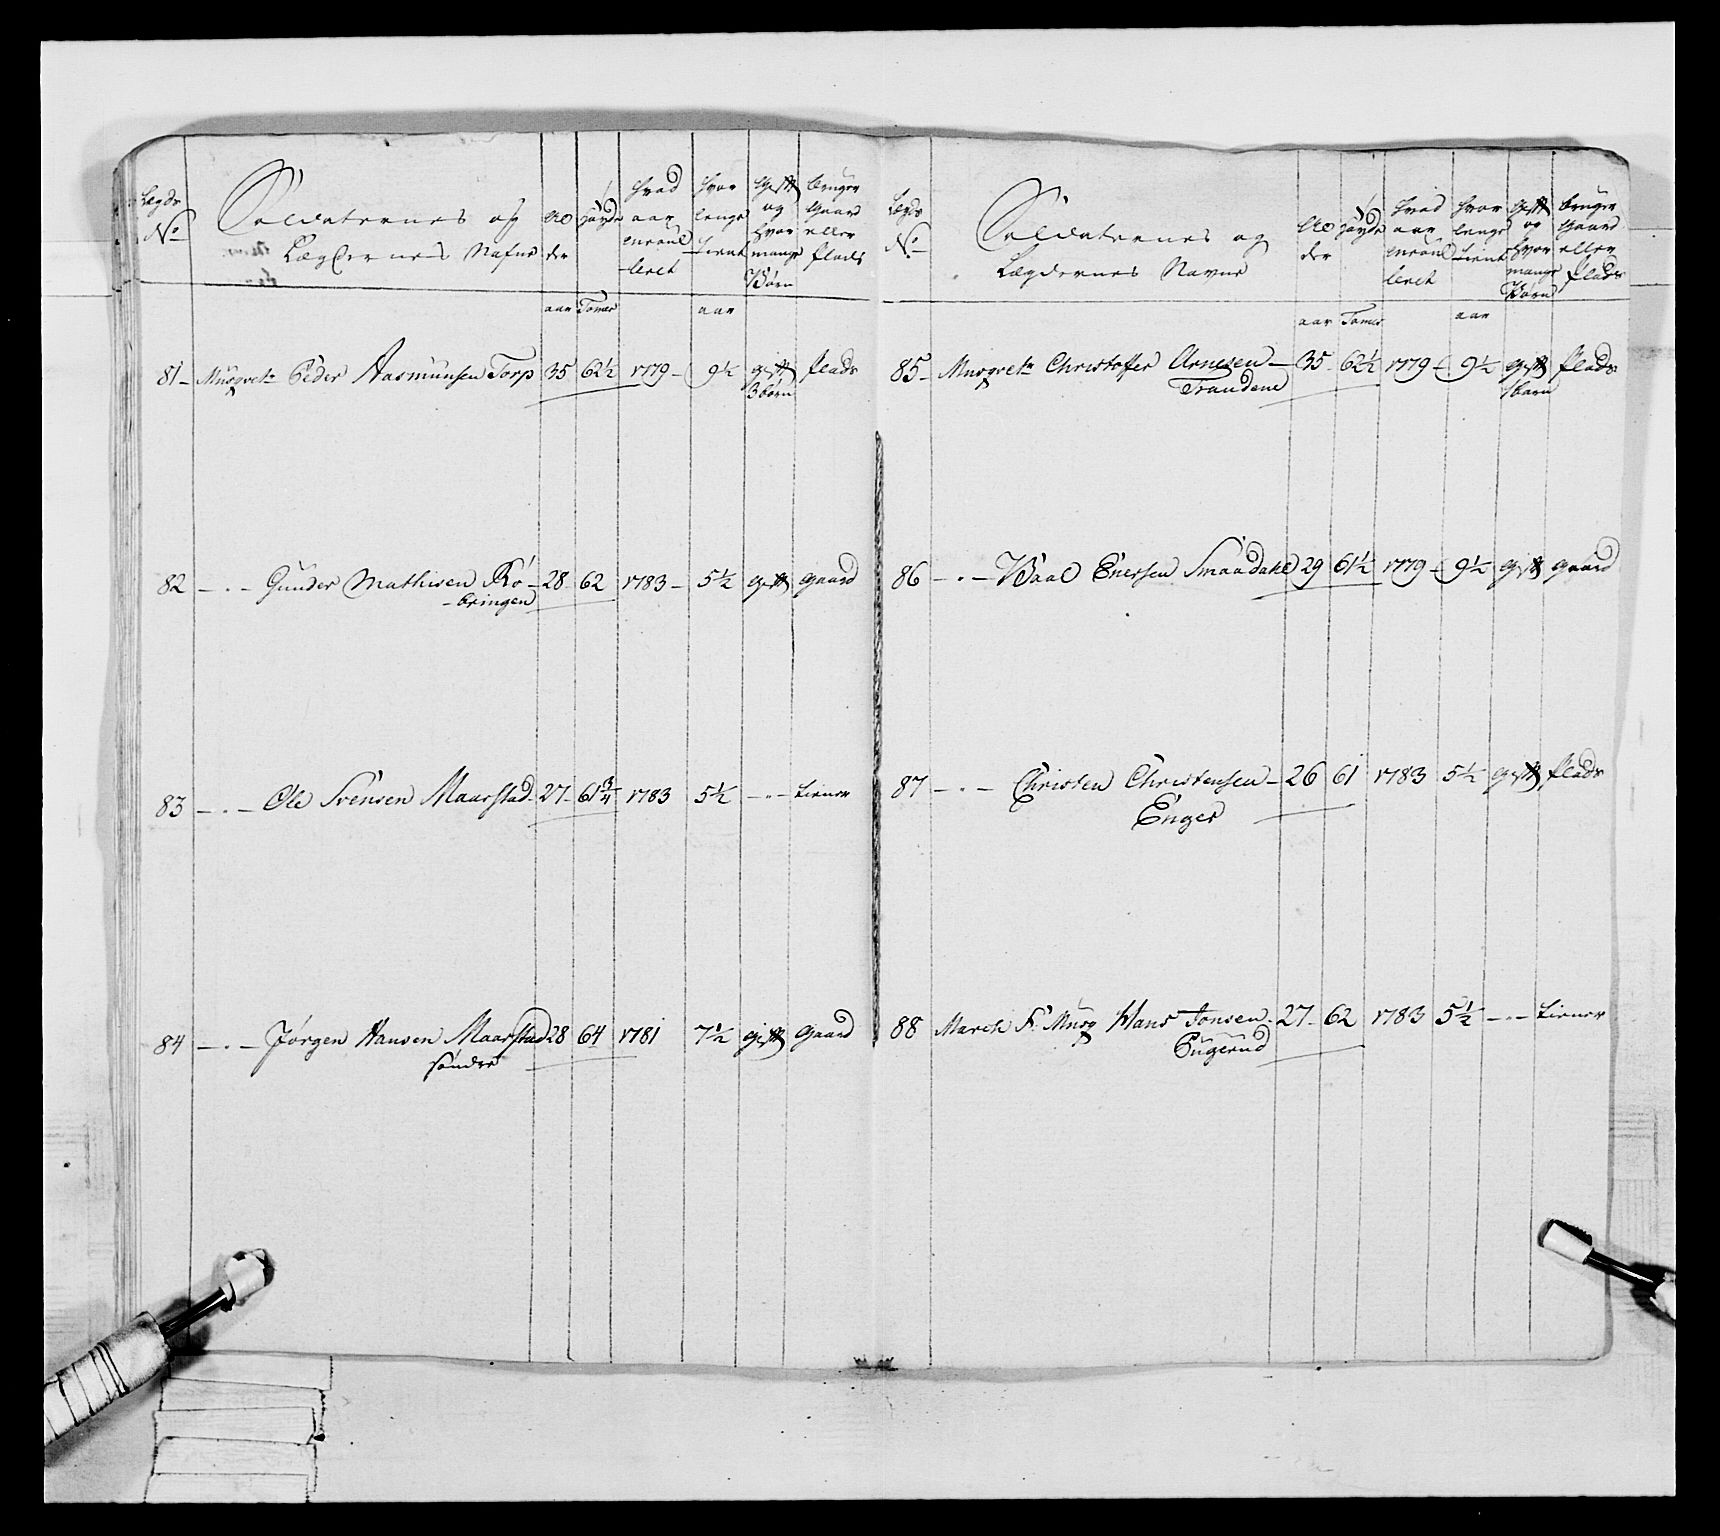 Lægds No Soldaternes og Lægdernes Nafne Al der Høyde hvad aar enroul leret hvor lenge tient Gift og hvor mange Børn bruger Gaard eller plads
aar Tomer aar
81 - Musqvetr Peder Aasmunsen Torp 35 62½ 1779 - 9½ gift 3 børn plads
82 - " - Gunder Mathisen Kø-bringen 28 62 1783 - 5½ gift gaard
83 - " - Ole Svensen Maarstad 27 61¾ 1783 5½ - " - tiener
84 - " - Jørgen Hansen Maarstad søndre 28 64 1781 7½ gift gaard
Lægds No Soldaternes og Lægdernes Navne Al der Høyde hvad aar enroul leret hvor lenge tient Gift og hvor mange Børn bruger Gaard eller plads
aar Tomer aar
85 - Musqvetr Christoffer Arnesen Trandene 35 62½ 1779 - 9½ gift 1 barn plads
86 - " - Enersen Smaadahl 29 61½ 1779 - 9½ gift gaard
87 - " - Christen Christensen Enger 26 61 1783 5½ gift plads
88 Musq Hans Jonsen Engerud 27 62 1783 5½ - " - tiener